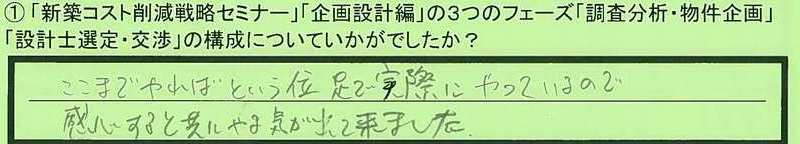 ①「新築コスト削減戦略セミナー」「企画設計編」の3つのフェーズ「調査分析・物件企画」
「設計士選定・交渉」の構成についていかがでしたか？
ここまでやればという位 足で実際にやっているので
感心すると共にやる気が出て来ました.